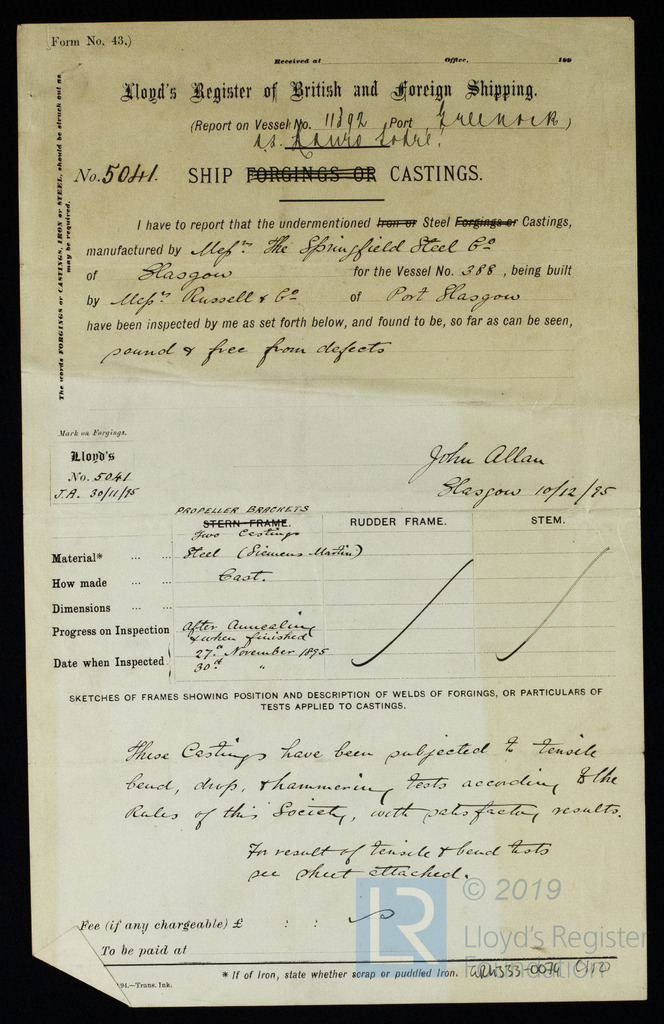 Form No. 43.)
Received at Office, 188
Lloyd's Register of British and Foreign Shipping.
(Report on Vessel No. 11392 Port Greenock)
s.s. Lauro Sodré.
No. 5041. SHIP FORGINGS OR CASTINGS.
The words FORGINGS or CASTINGS, IRON or STEEL, should be struck out as
may be required.
I have to report that the undermentioned Iron or Steel Forgings or Castings,
manufactured by Messrs. The Springfield Steel Co
of Glasgow for the Vessel No. 388, being built
by Messrs. Russell & Co of Port Glasgow
have been inspected by me as set forth below, and found to be, so far as can be seen,
sound & free from defects
Mark on Forgings.
Lloyd's
No. 5041
J.A. 30/11/95
John Allan
Glasgow 10/12/95
PROPELLER BRACKETS
STERN FRAME. RUDDER FRAME. STEM.
Two Castings
Material* Steel (Siemens Martin)
How made Cast.
Dimensions
Progress on Inspection After Annealing
& when finished
Date when Inspected 27th November 1895
30th "
SKETCHES OF FRAMES SHOWING POSITION AND DESCRIPTION OF WELDS OF FORGINGS, OR PARTICULARS OF
TESTS APPLIED TO CASTINGS.
These Castings have been subjected to tensile
bend, drop, & hammering tests according to the
Rules of this Society, with satisfactory results.
For result of tensile & bend tests
see sheet attached.
Fee (if any chargeable) £ : :
To be paid at
* If of Iron, state whether scrap or puddled Iron.
94.—Trans. Ink.
LR
© 2019
Lloyd's Register
Foundation